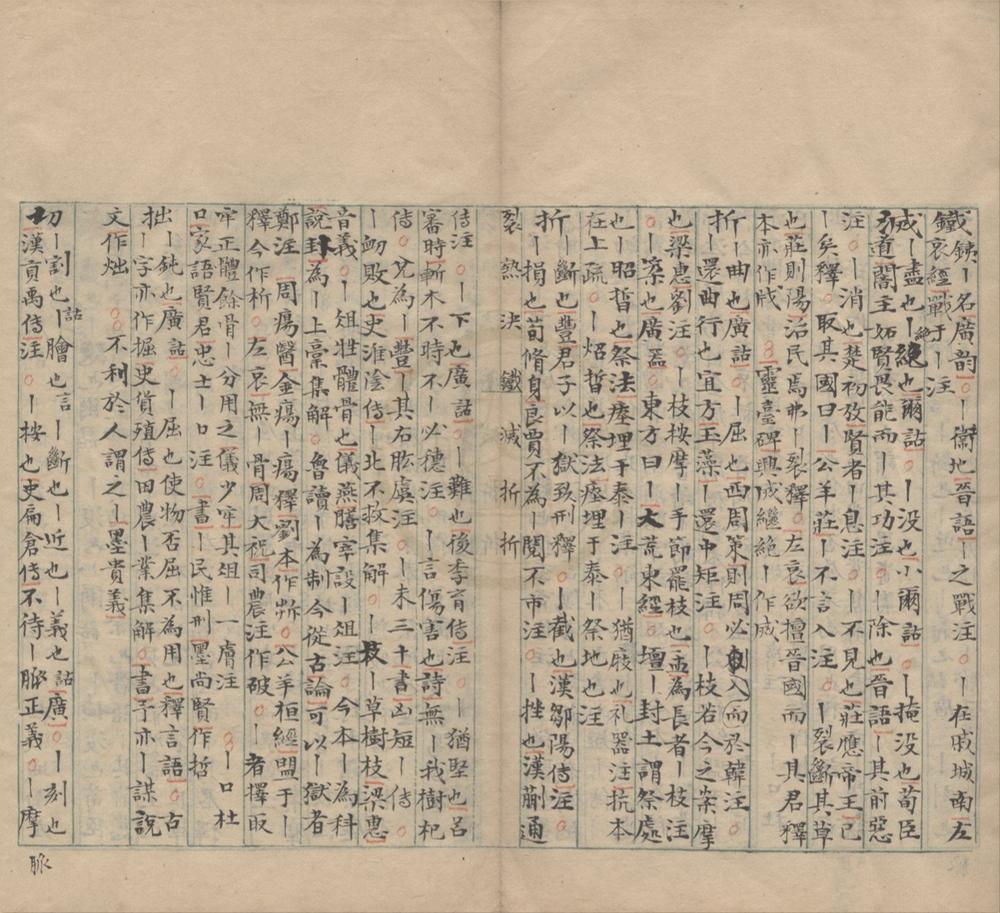 鐵銕丨名廣韵○丨衞地晉語丨之戰注○丨在戚城南左
哀經戰于丨注
烕丨盡也丨絕也爾詁○丨没也小爾詁○丨掩没也荀臣
道闇主妬賢畏能而丨其功注○丨除也晉語丨其前惡
注○丨消也楚初攷賢者丨息注○丨不見也莊應帝王已
丨矣釋○取其國曰丨公羊莊丨不言入注 丨裂斷其草
也莊則陽治民焉弗丨裂釋○左哀欲擅晉國而丨其君釋
本亦作烕 靈臺碑興烕繼絕丨作烕
折丨曲也廣詁○丨屈也西周策則周必折入而於韓注○
丨還曲行也宜方玉藻丨還中矩注○丨枝若今之案摩
也梁惠劉注○丨枝按摩丨手節罷枝也孟為長者丨枝注
○丨案也廣器○東方曰丨大荒東經○壇丨封土謂祭處
也丨昭晢也祭法瘞埋于泰丨注○丨猶㡿也礼器注抗本
在上疏○丨炤晢也祭法瘞埋于泰丨祭地也注
折丨斷也豐君子以丨獄致刑釋○丨截也漢鄒陽傳注○
丨損也荀脩身良賈不為丨閱不市注○丨挫也漢蒯通
裂 熱 決 鐵 滅 折 折
傳注○丨下也廣詁○丨難也後李育傳注○丨猶堅也呂
審時斬木不時不丨必德注○丨言傷害也詩無丨我樹杞
傳○兌為丨豐丨其右肱虞注○丨未三十書凶短丨傳○
丨衂敗也史淮陰傳丨北不救集解○丨枝丨草樹枝梁惠
音義○丨俎牲體骨也儀燕膳宰設丨俎注○今本丨為科
說卦為丨上槀集解○魯讀丨為制今從古論可以丨獄者
鄭注 周瘍醫金瘍丨瘍釋劉本作斯○公羊桓經盟于丨
釋今作析○左哀無丨骨周大祝司農注作破○丨者擇取
牢正體餘骨丨分用之儀少牢其俎丨一膚注 丨口杜
口家語賢君忠士丨口注○書丨民惟刑墨尚賢作哲
拙丨鈍也廣詁○丨屈也使物否屈不為用也釋言語○古
丨字亦作掘史貨殖傳田農丨業集解○書予亦丨謀說
文作炪 ○不利於人謂之丨墨貴義
切丨割也丨膾也言丨斷也丨近也丨義也詁廣○丨刻也
漢貢禹傳注○丨按也史扁倉傳不待丨脈正義○丨摩
脈